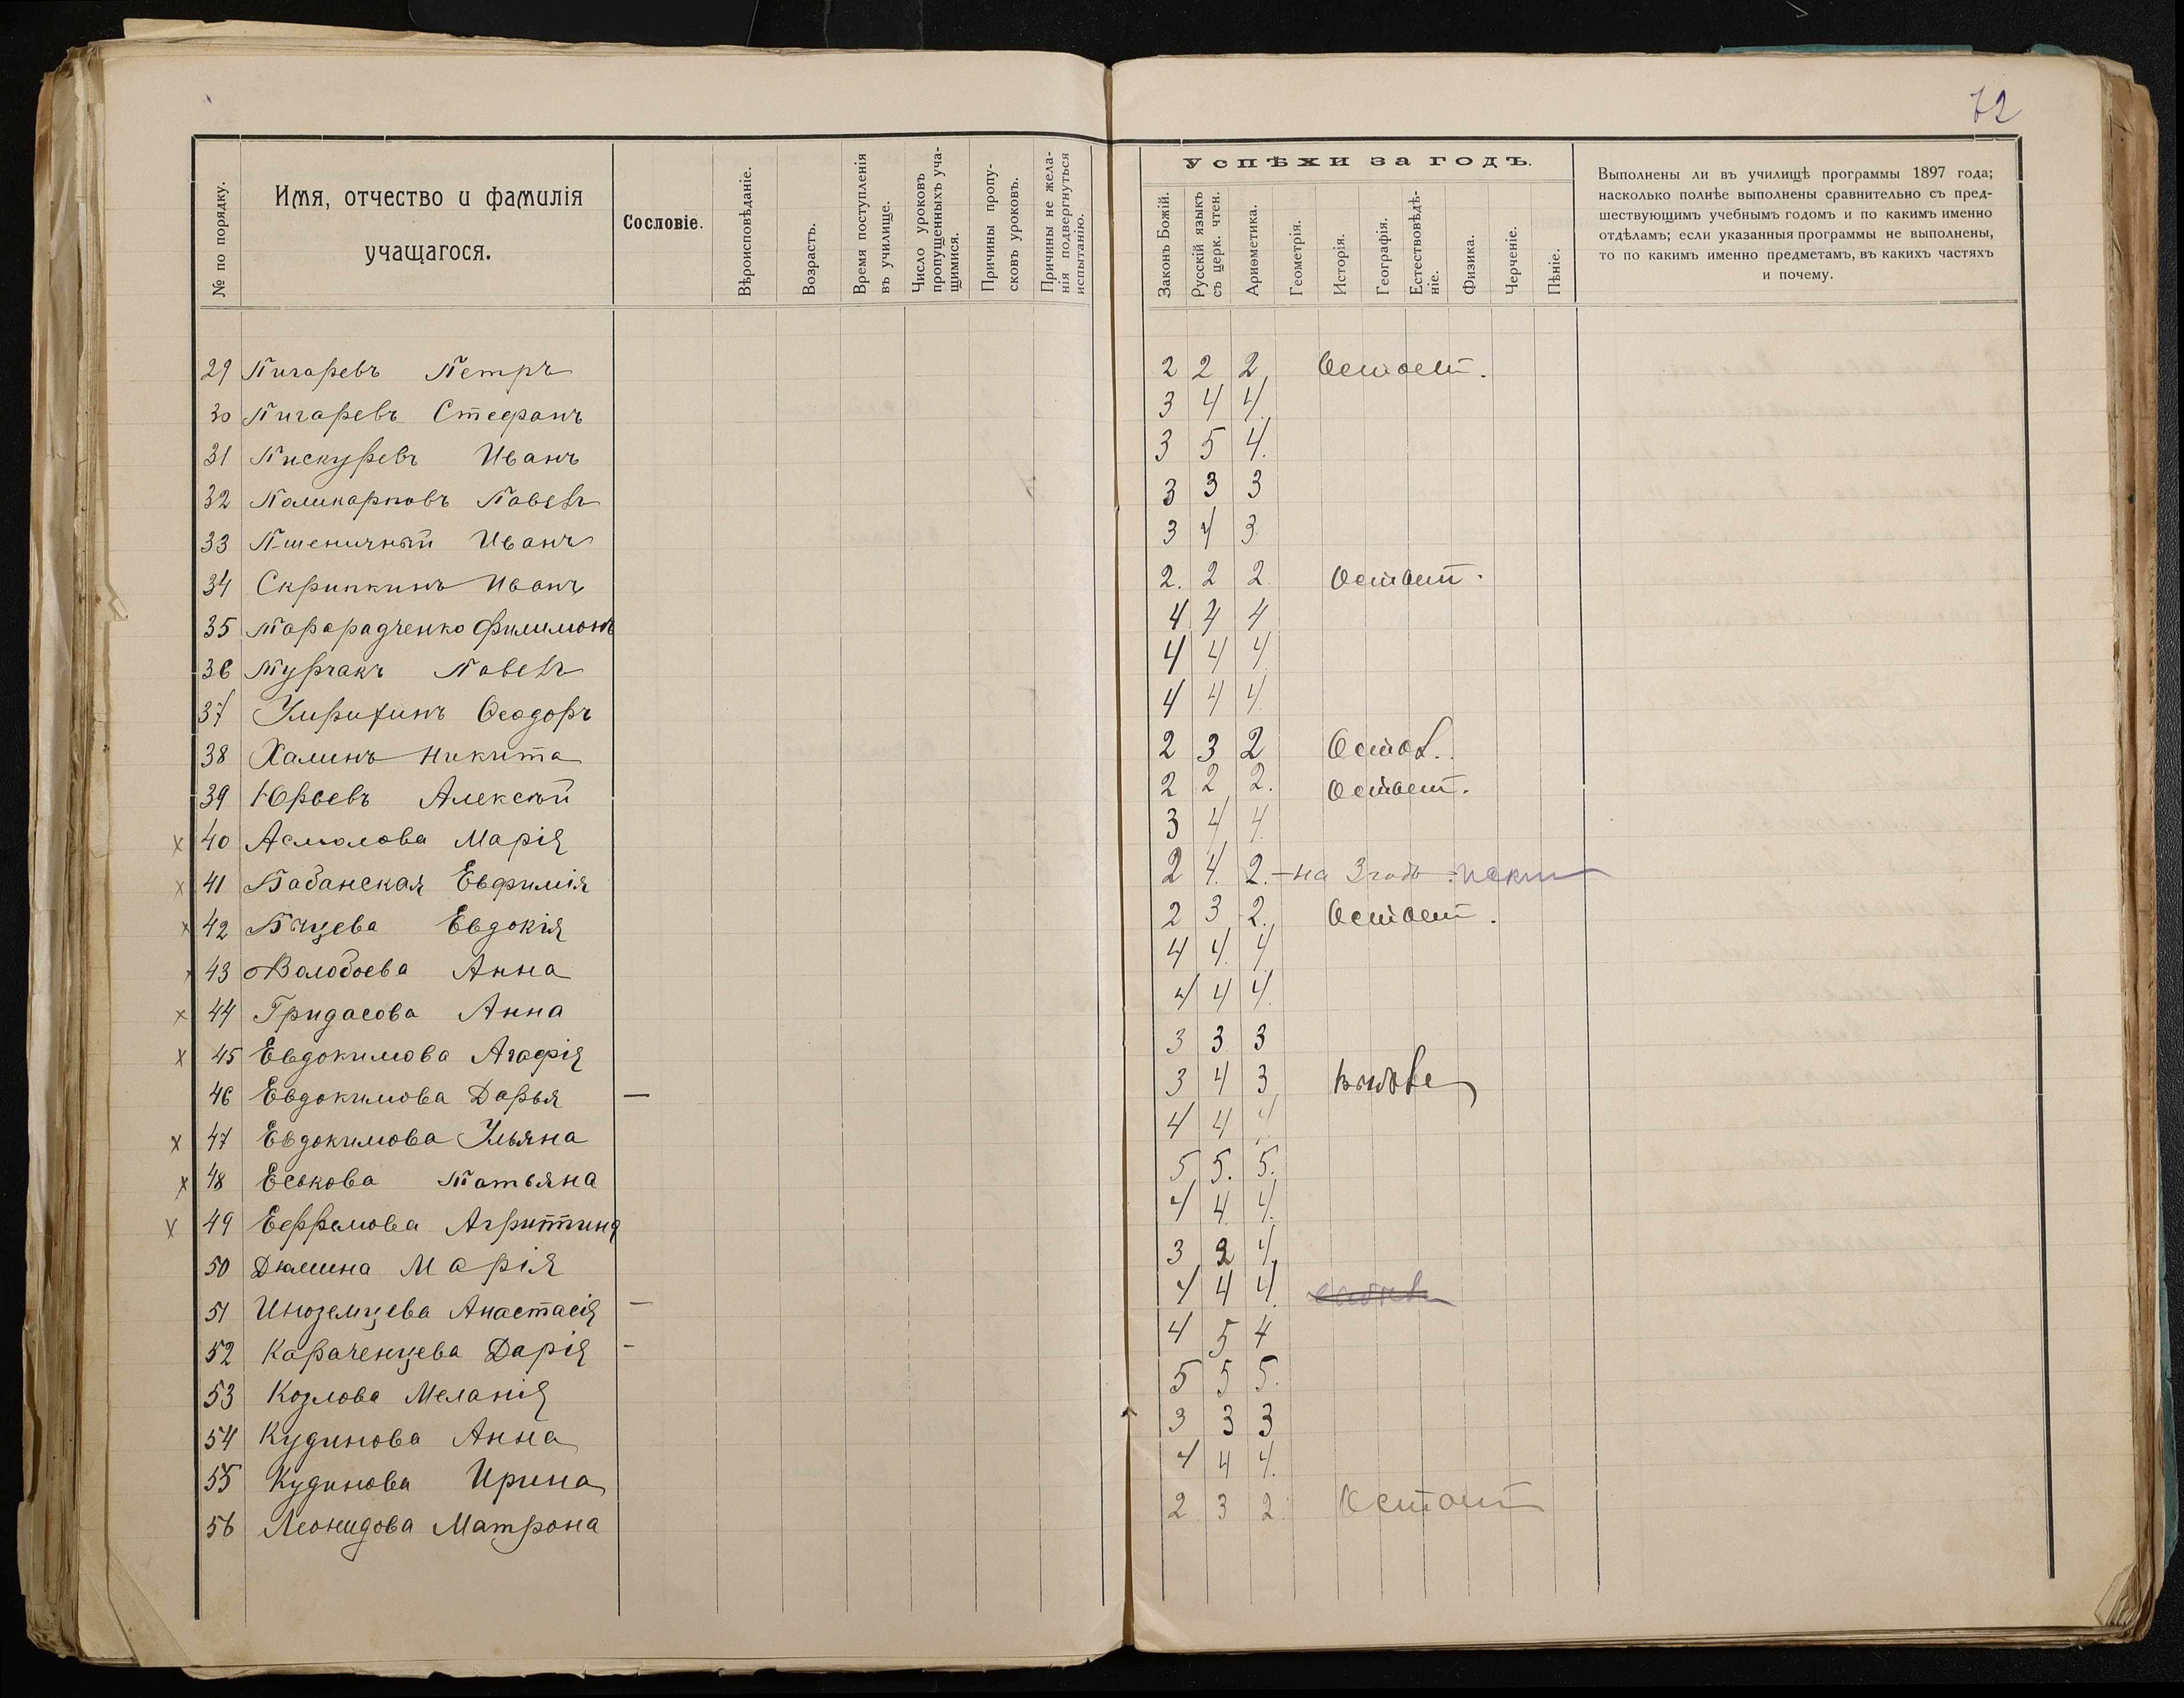 72
№ по порядку.
Имя, отчество и фамилія
учащагося.
Сословіе.
Вѣроисповѣданіе.
Возрастъ.
Время поступленія
въ училище.
Число уроковъ
пропущенныхъ уча-
щимися.
Причины пропу-
сковъ уроковъ.
Причины не жела-
нія подвергнуться
испытанію.
Успѣхи за годъ.
Законъ Божій.
Русскій языкъ
съ церк. чтен.
Ариѳметика.
Геометрія.
Исторія.
Географія.
Естествовѣдѣ-
ніе.
Физика.
Черченіе.
Пѣніе.
Выполнены ли въ училищѣ программы 1897 года;
насколько полнѣе выполнены сравнительно съ пред-
шествующимъ учебнымъ годомъ и по какимъ именно
отдѣламъ; если указанныя программы не выполнены,
то по какимъ именно предметамъ, въ какихъ частяхъ
и почему.
29 Пигаревъ Петръ 2 2 2 Остает.
30 Пигаревъ Стефанъ 3 4 4.
31 Пискуревъ Иванъ 3 5 4.
32 Поликарповъ Павелъ 3 3 3
33 Пшеничный Иванъ 3 4 3
34 Скрипкинъ Иванъ 2. 2 2. Остает.
35 Тарарадченко Филимонъ 4 4 4
36 Турчакъ Павелъ 4 4 4
37 Ѳеодоръ 4 4 4.
38 Халинъ Никита 2 3 2 Остав.
39 Юрьевъ Алексѣй 2 2 2. Остает.
х 40 Асмолова Марія 3 4 4.
х 41 Бабанская Евфимія 2 4. 2. — на 3 годъ
х 42 Евдокія 2 3 2. Остает.
х 43 Волобоева Анна 4 4. 4
х 44 Гридасова Анна 4 4 4.
х 45 Евдокимова Агафія 3 3 3
46 Евдокимова Дарья — 3 4 3
х 47 Евдокимова Ульяна 4 4 4
х 48 Еськова Татьяна 5 5. 5.
х 49 Ефремова Агриппина 4 4 4.
50 Дюмина Марія 3 2 4.
51 Иноземцева Анастасія — 4 4 4.
52 Караченцева Дарія - 4 5 4
53 Козлова Меланія 5 5 5.
54 Кудинова Анна 3 3 3
55 Кудинова Ирина 4 4 4.
56 Леонидова Матрона 2 3 2. Остает